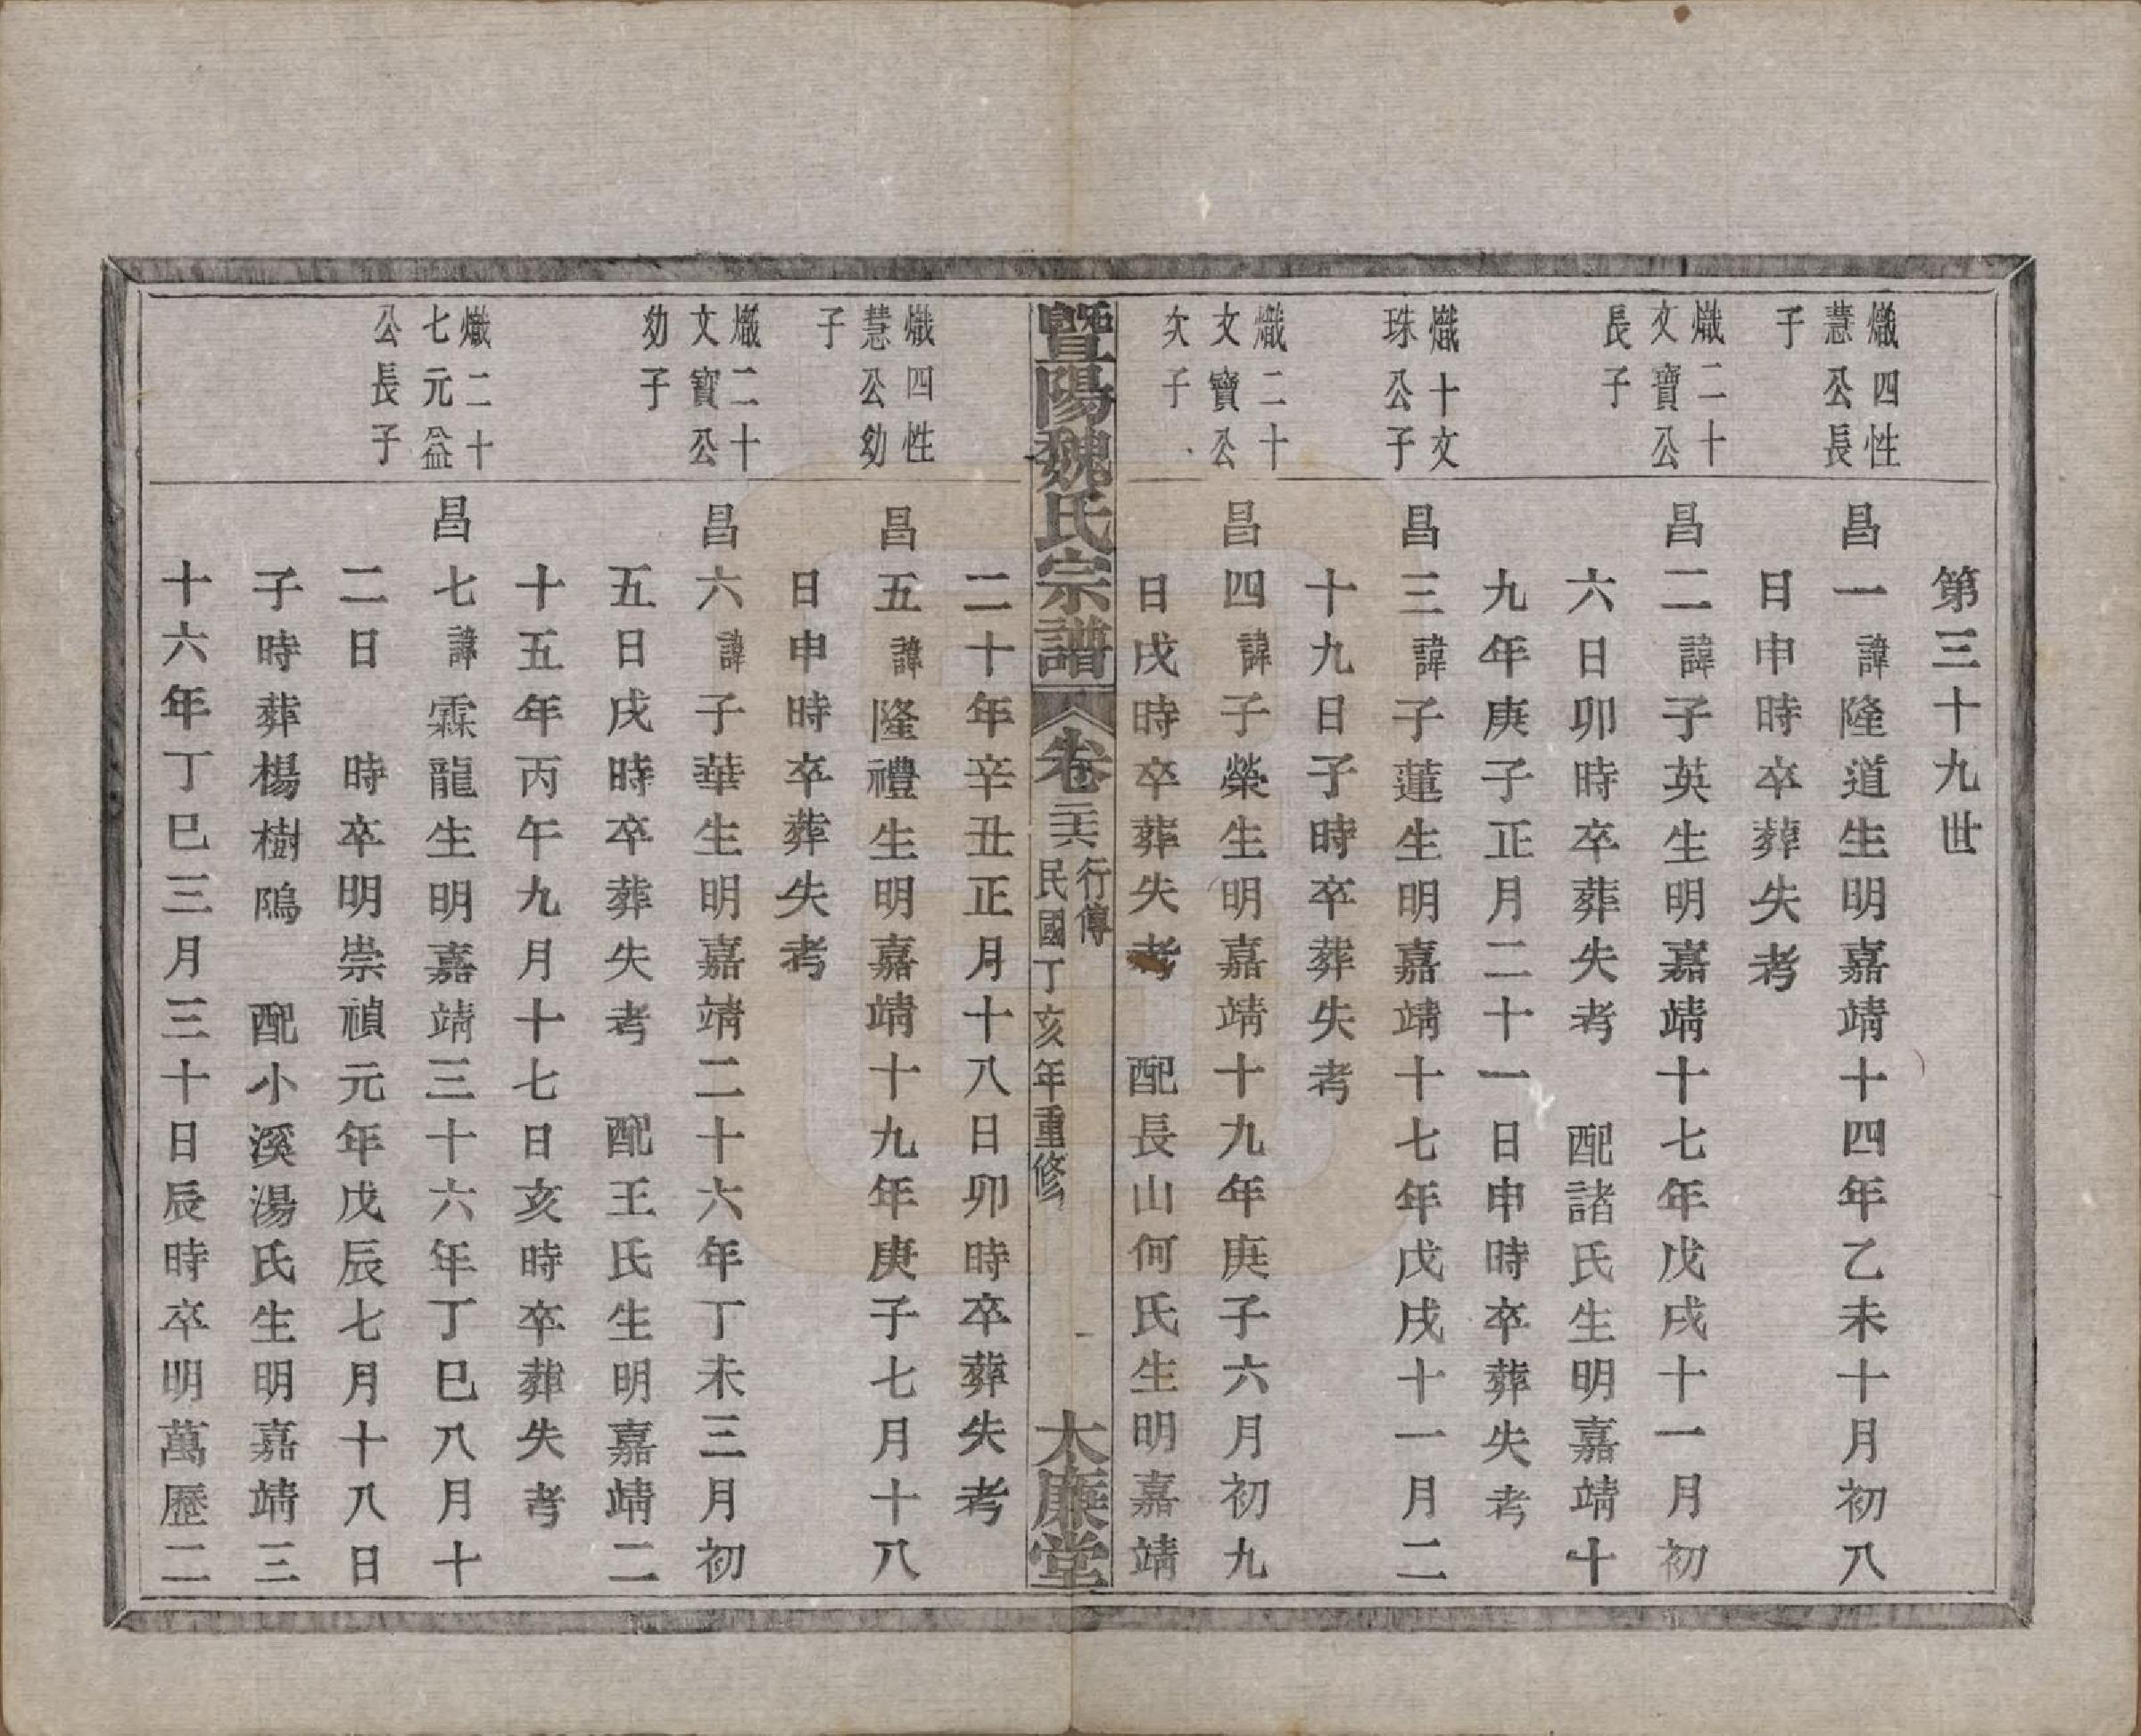 第三十九世
熾四性
慧公長
子
昌一諱隆道生明嘉靖十四年乙未十月初八
日申時卒葬失考
熾二十
文寶公
長子
昌二諱子英生明嘉靖十七年戊戌十一月初
六日卯時卒葬失考　配諸氏生明嘉靖十
九年庚子正月二十一日申時卒葬失考
熾十文
珠公子
昌三諱子蓮生明嘉靖十七年戊戌十一月二
十九日子時卒葬失考
熾二十
文寶公
次子
昌四諱子榮生明嘉靖十九年庚子六月初九
日戌時卒葬失考　配長山何氏生明嘉靖
暨陽魏氏宗譜
卷二十六
行傳
民國丁亥年重修
一
大廉堂
二十年辛丑正月十八日卯時卒葬失考
熾四性
慧公幼
子
昌五諱隆禮生明嘉靖十九年庚子七月十八
日申時卒葬失考
熾二十
文寶公
幼子
昌六諱子華生明嘉靖二十六年丁未三月初
五日戌時卒葬失考　配王氏生明嘉靖二
十五年丙午九月十七日亥時卒葬失考
熾二十
七元益
公長子
昌七諱霖龍生明嘉靖三十六年丁巳八月十
二日　時卒明崇禎元年戊辰七月十八日
子時葬楊樹隝　配小溪湯氏生明嘉靖三
十六年丁巳三月三十日辰時卒明萬歷二